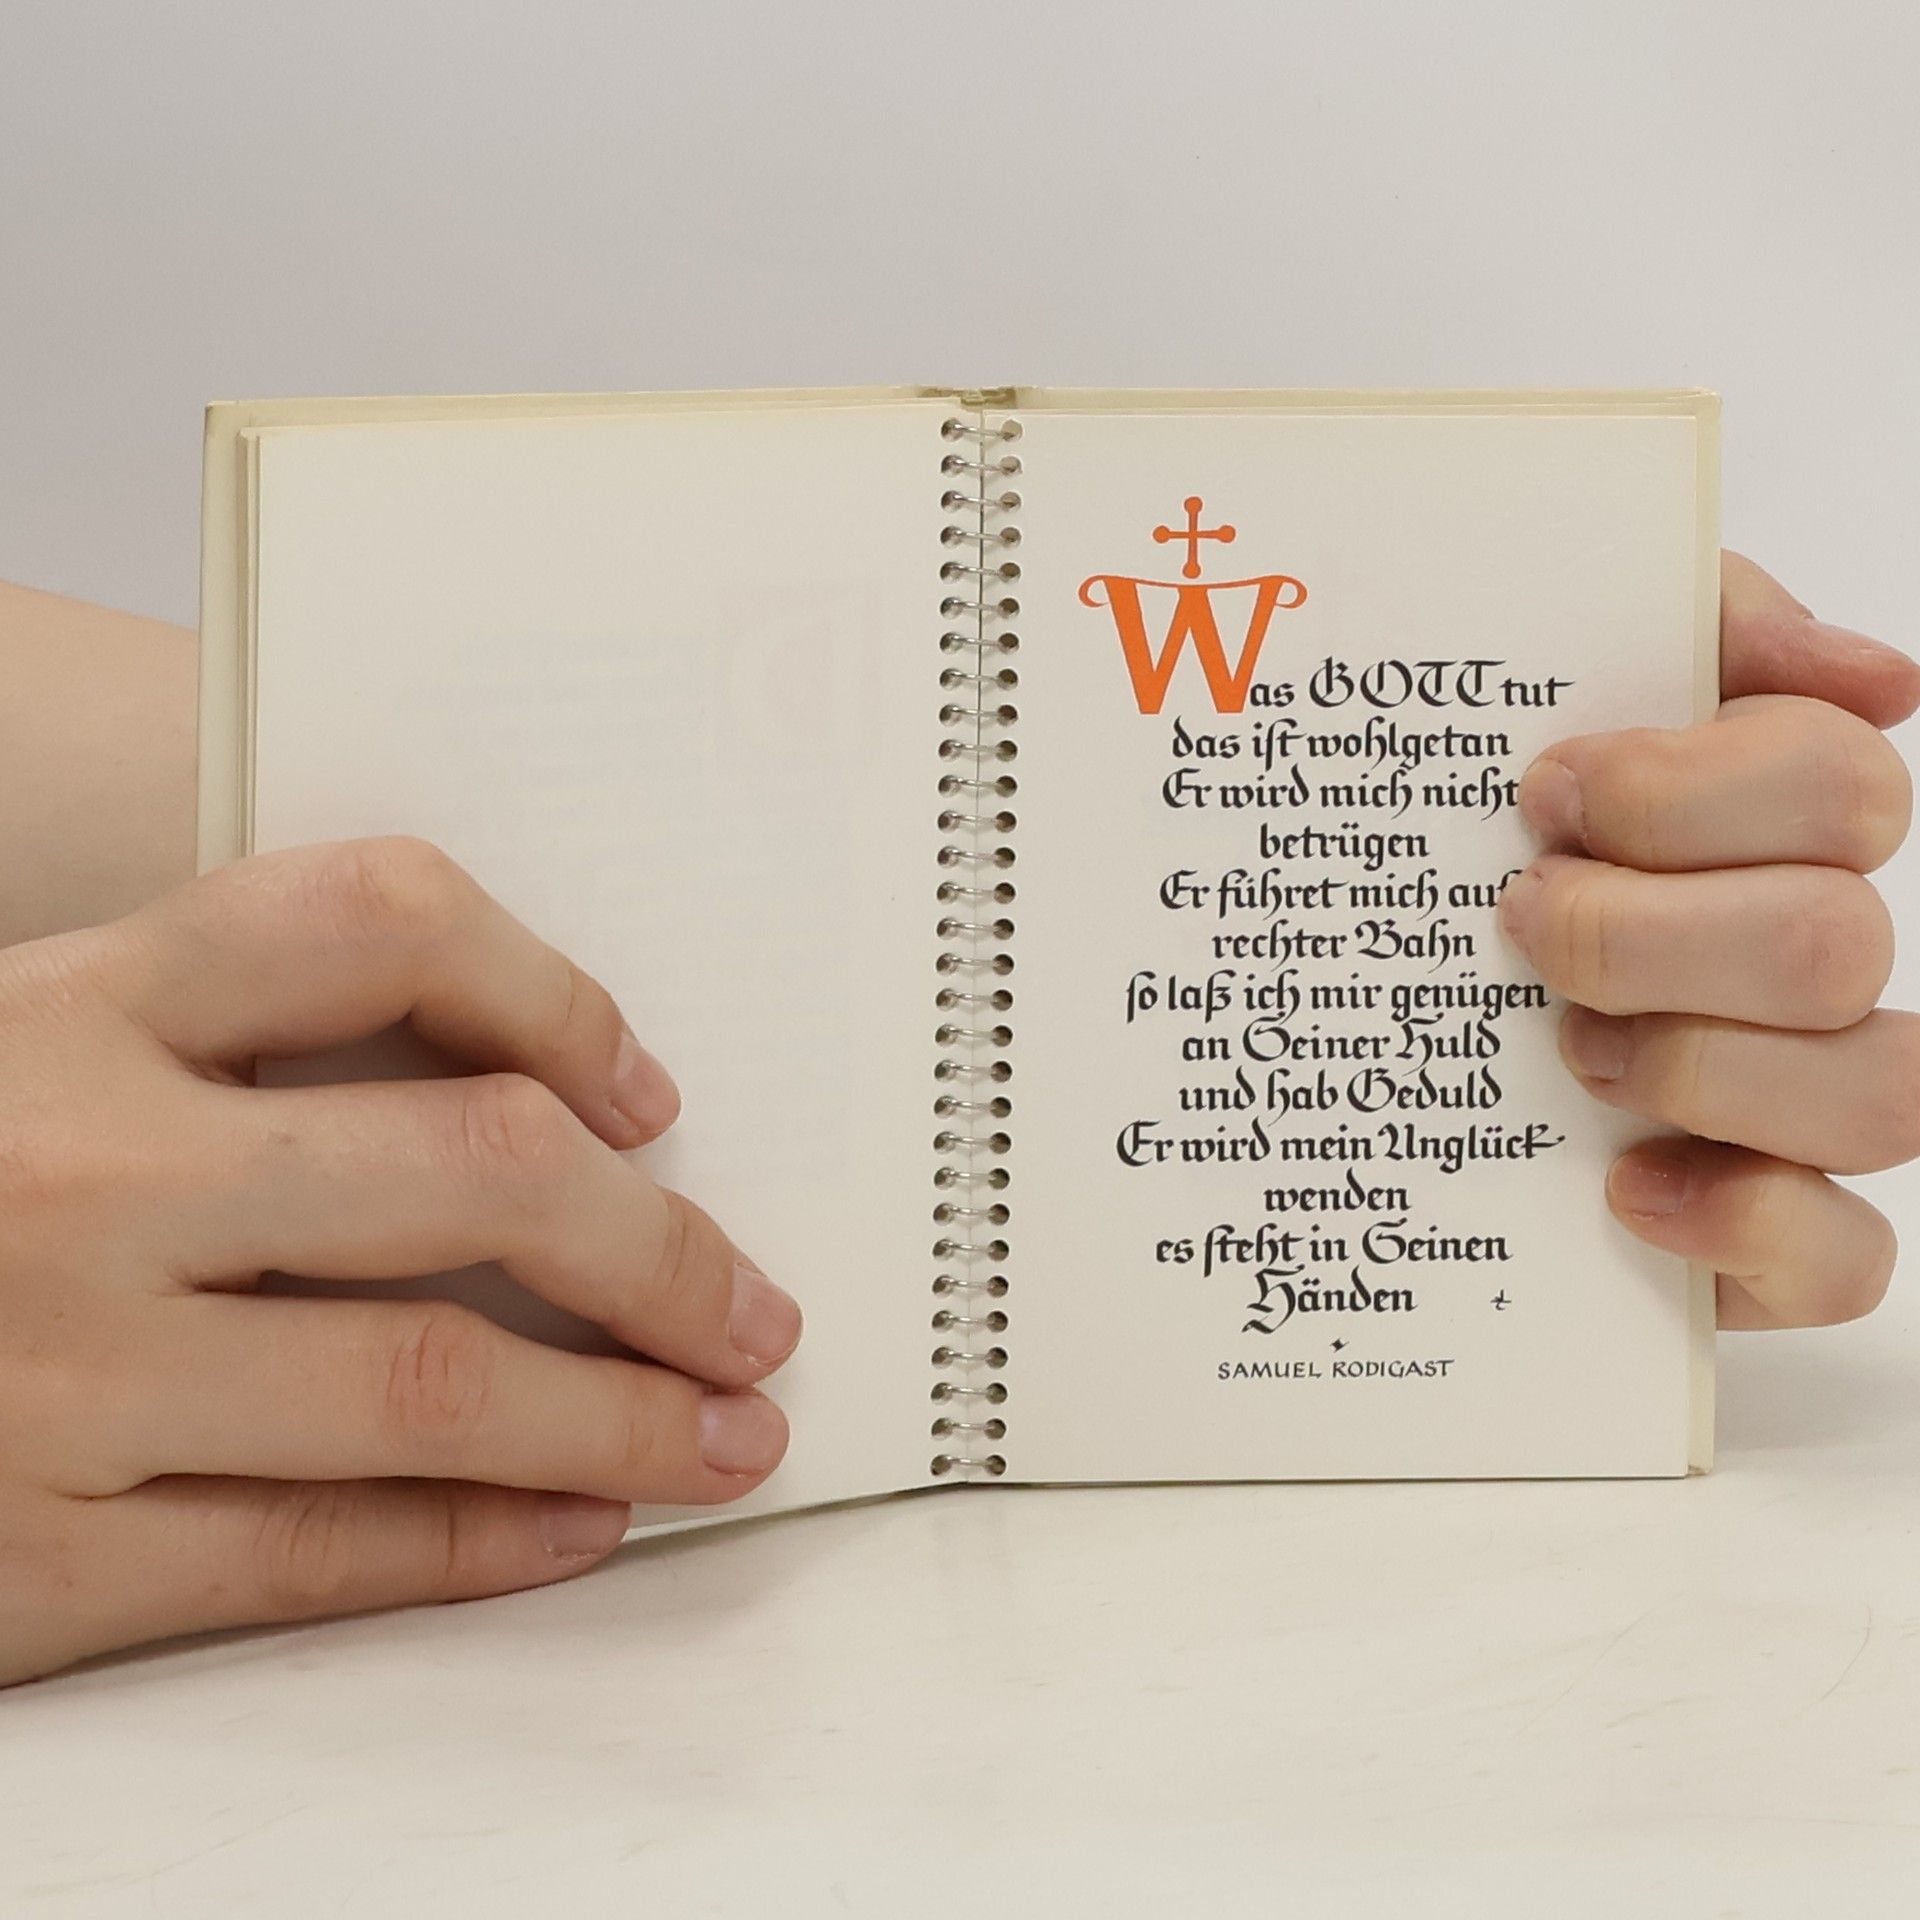 Was GOTT tut
das ist wohlgetan
Er wird mich nicht
betrügen
Er führet mich auf
rechter Bahn
so laß ich mir genügen
an Seiner Huld
und hab Geduld
Er wird mein Unglück
wenden
es steht in Seinen
Händen
SAMUEL RODIGAST